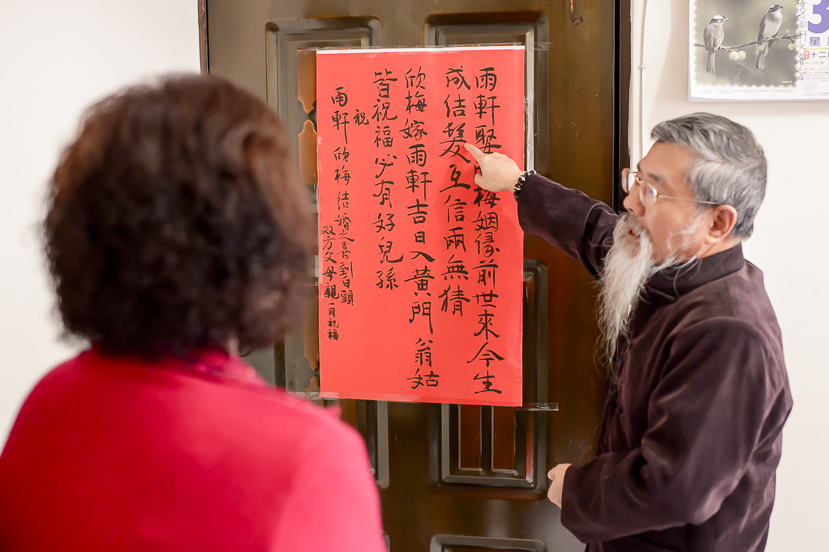 雨軒娶梅姻緣前世來今生
成結髮互信兩無猜
欣梅嫁雨軒吉日入黃門翁姑
皆祝福必有好兒孫
祝
雨軒 欣梅結婚之喜到白頭
双方父母親一同祝福
3
星
日十二